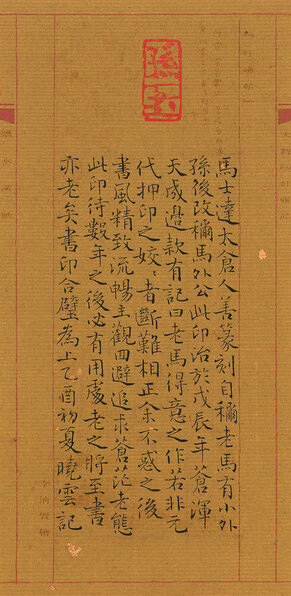 馬士達太倉人善篆刻自稱老馬有小外
孫後改稱馬外公此印治於戊辰年蒼渾
天成邊款有記曰老馬得意之作若非元
代押印之姣姣者斷難相正余不惑之後
書風精致流暢主觀回避追求蒼茫老態
此印待數年之後必有用處老之將至書
亦老矣書印合璧為上乙酉初夏曉雲記